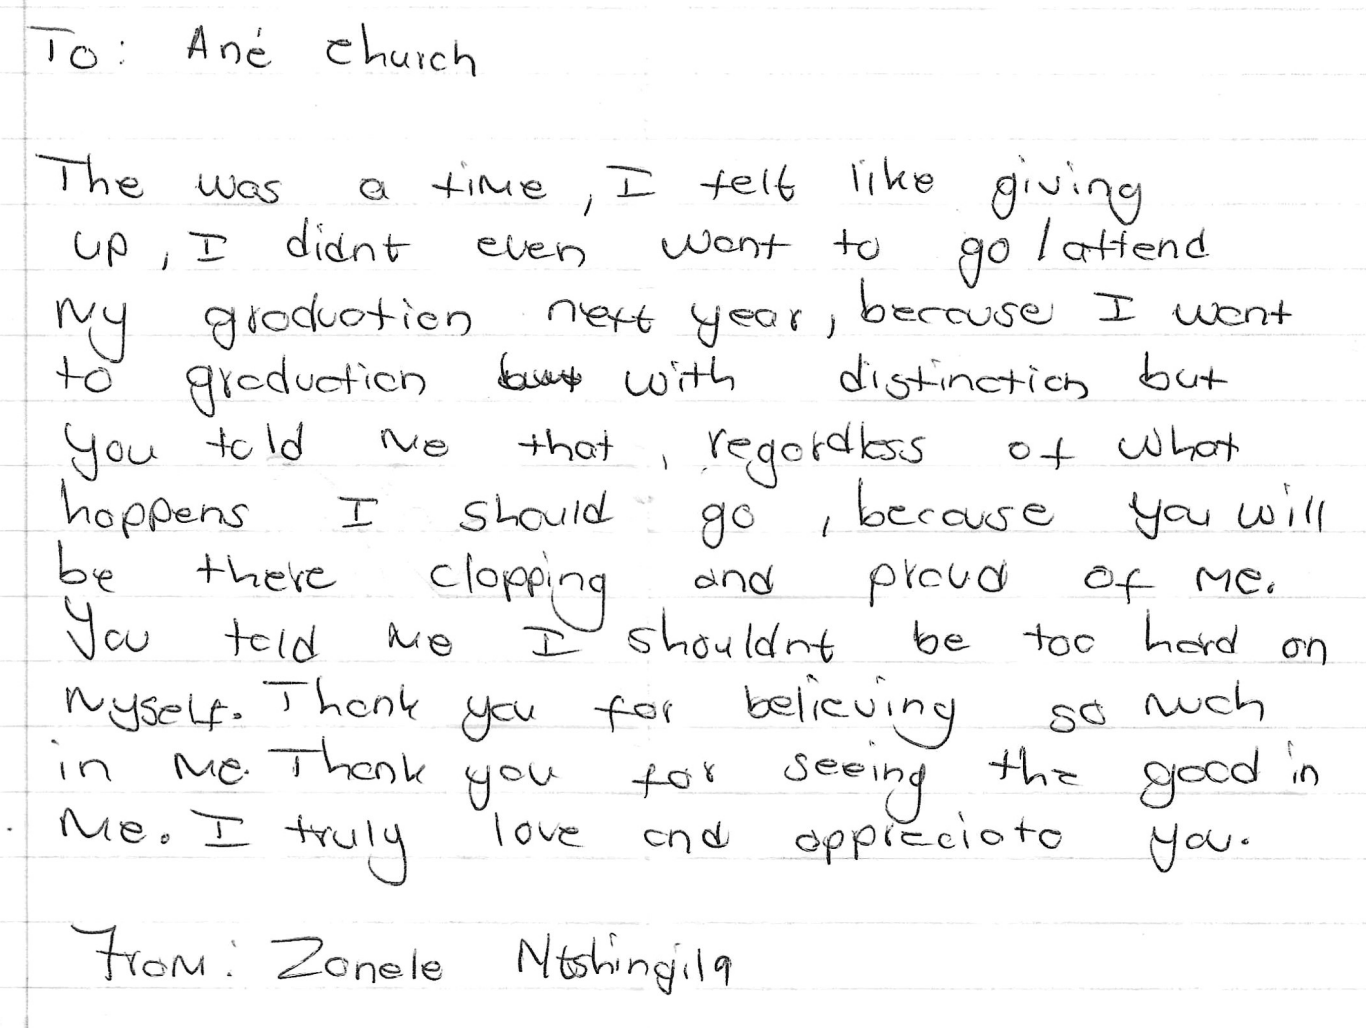 To: Ané Church
The was a time, I felt like giving
up, I didnt even want to go/attend
My graduation next year, because I want
to graduation but with distinction but
you told me that, regardless of what
happens I should go, because you will
be there clapping and proud of me.
You told me I shouldnt be too hard on
Myself. Thank you for believing so much
in me. Thank you for seeing the good in
Me. I truly love and appreciate you.
From: Zanele Ntshingila